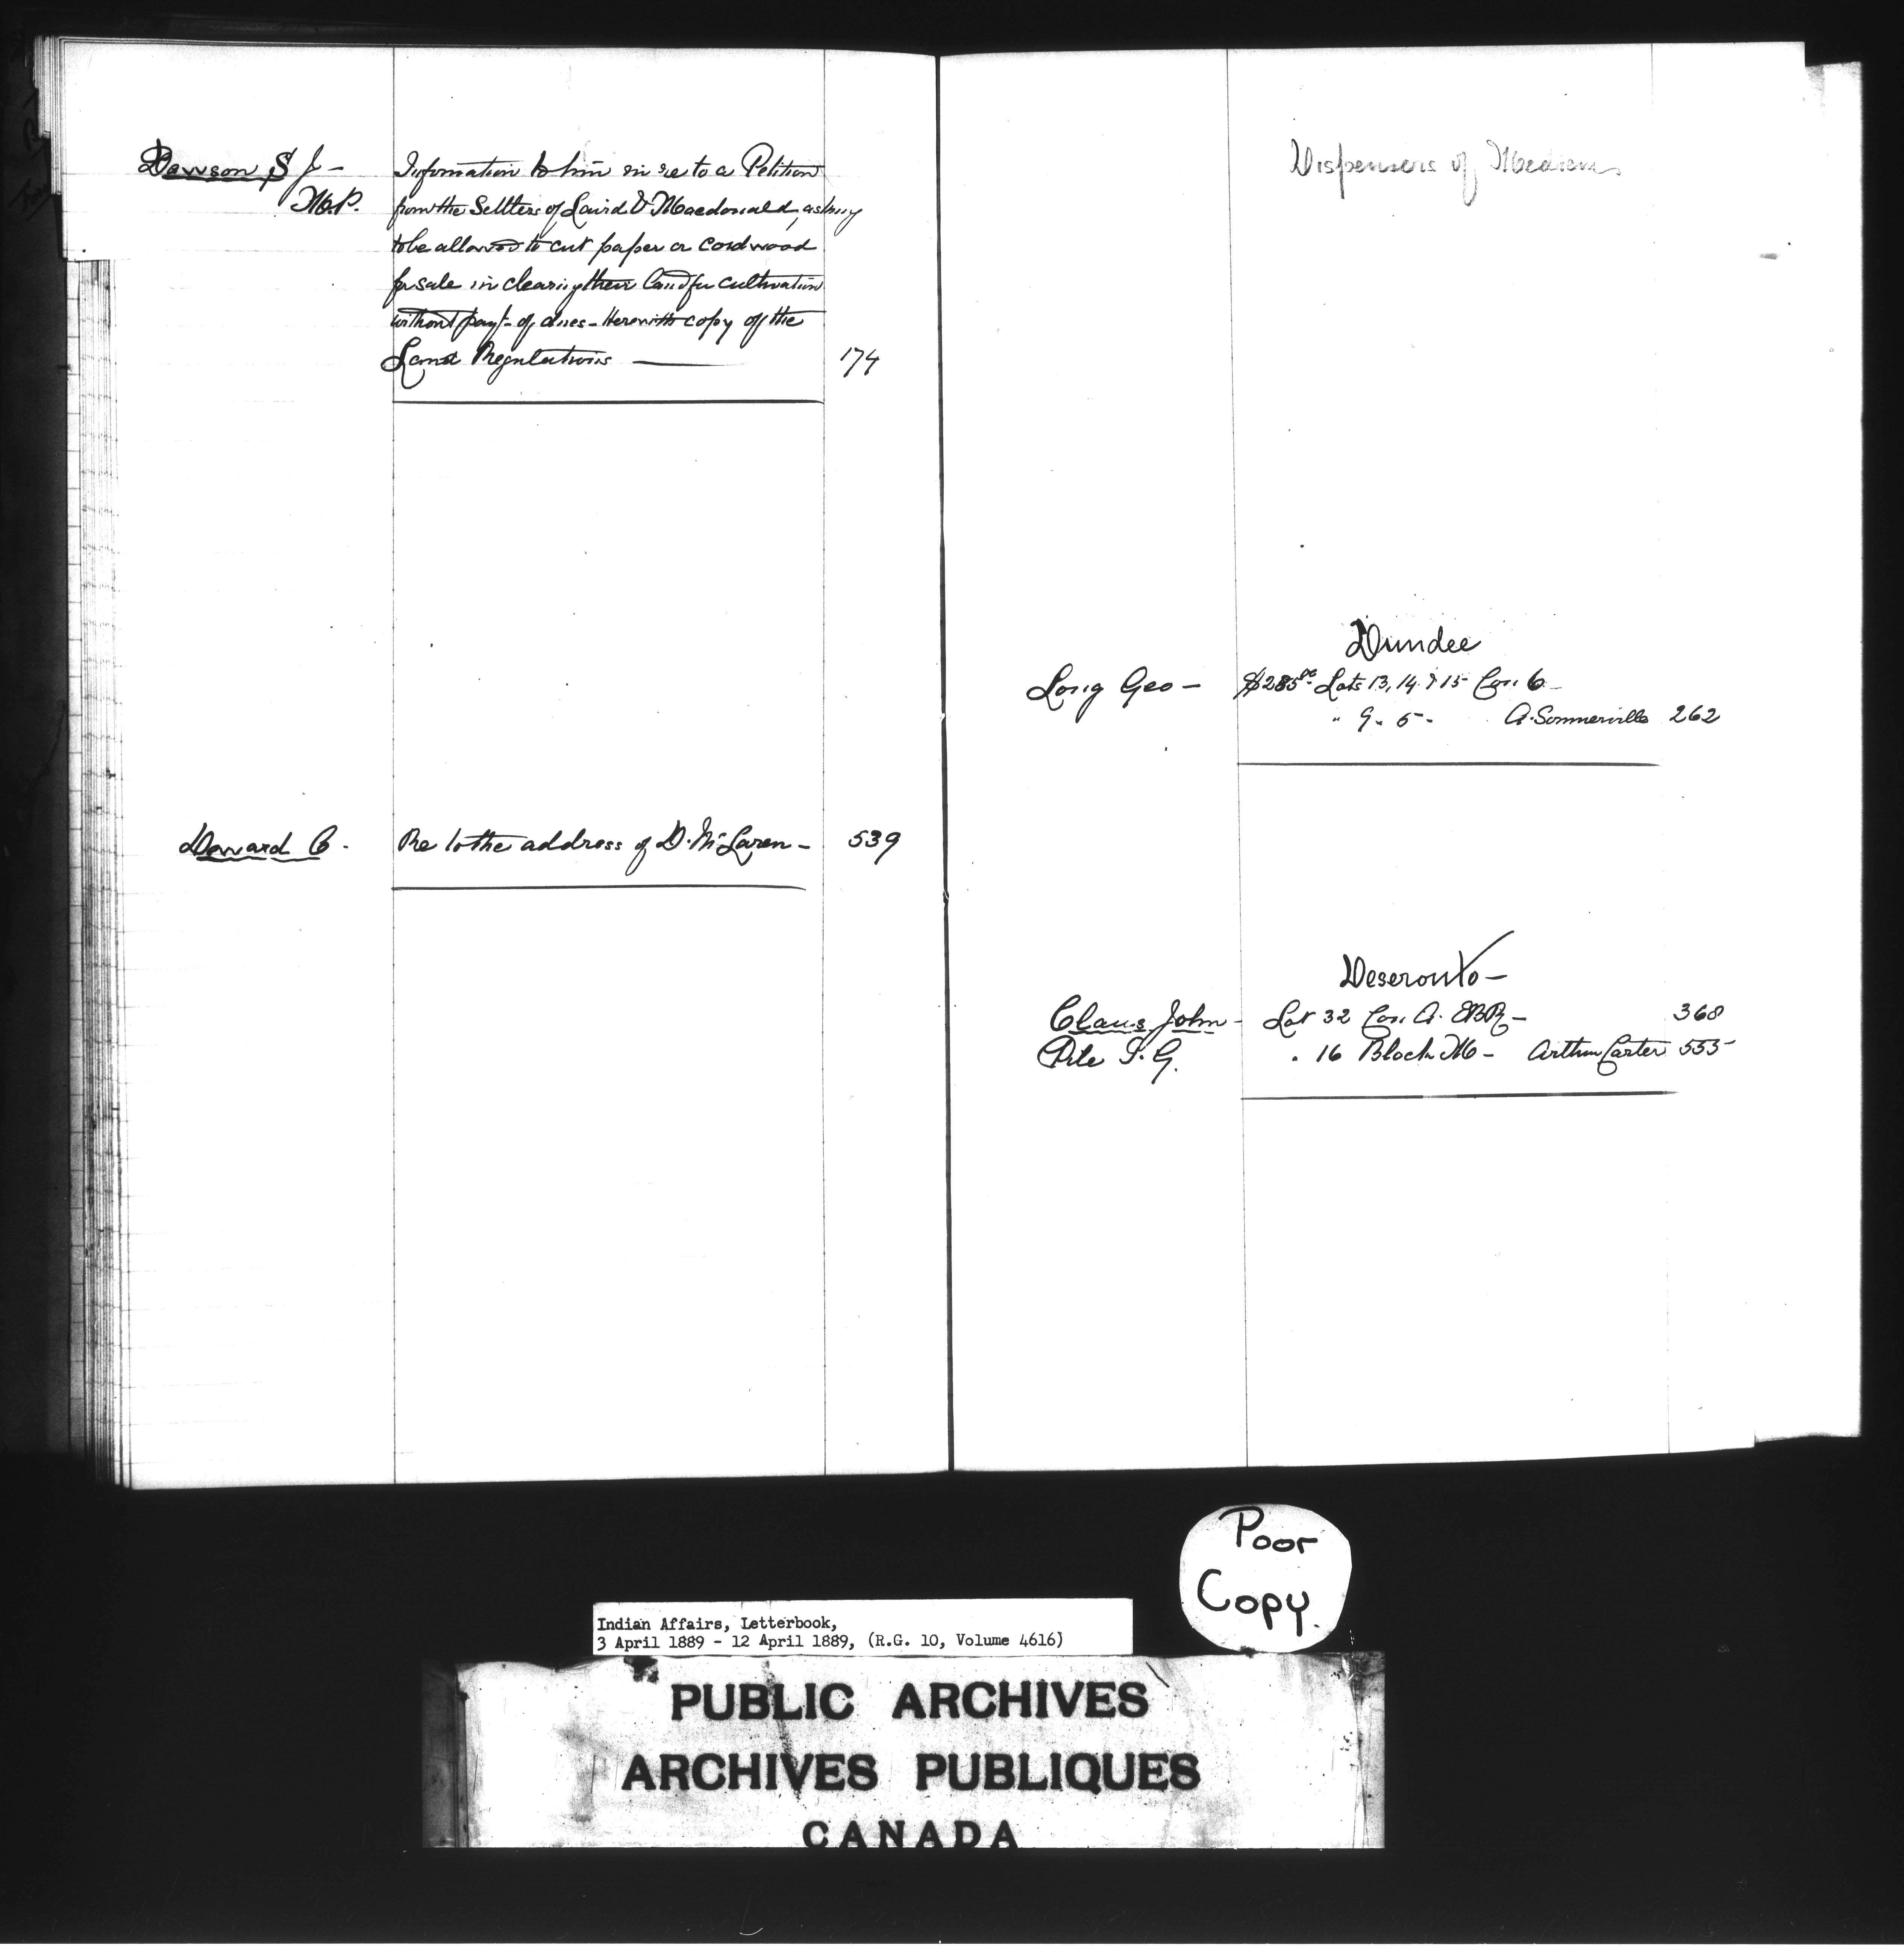 Dawson S J - Information to him in re to a Petition
M.P. from the Settlers of Laird & Macdonald, asking
to be allowed to cut paper or cordwood
for sale in clearing their land for cultivation
without payt. of dues - Herewith copy of the
Land Regulations — 174
Devard C. Re to the address of D. McLaren - 539
Dispensers of Medicine
Dundee
Long Geo - $285 Lots 13, 14 & 15 Con. 6 -
" 9 - 5 - A. Sommerville 262
Deseronto -
Claus John - Lot 32 Con. A. EBR - 368
Pile S. G. " 16 Block M - Arthur Carter 555
Poor
Copy.
Indian Affairs, Letterbook,
3 April 1889 - 12 April 1889, (R.G. 10, Volume 4616)
PUBLIC ARCHIVES
ARCHIVES PUBLIQUES
CANADA